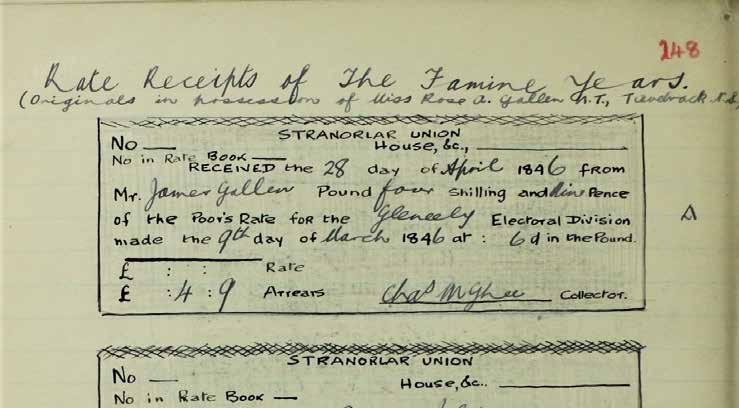 148
Rate Receipts of The Famine Years.
(Originals in possession of Miss Rose A. Gallen N.T., Tievebrack N.S.)
STRANORLAR UNION
No — House, &c.,
No in Rate Book —
RECEIVED the 28 day of April 1846 from
Mr. James Gallen Pound four Shilling and Nine Pence
of the Poor's Rate for the Gleneely Electoral Division
made the 9th day of March 1846 at : 6d in the Pound.
£ : : Rate
£ : 4 : 9 Arrears Chas McGhee Collector.
A
STRANORLAR UNION
No — House, &c..
No in Rate Book —